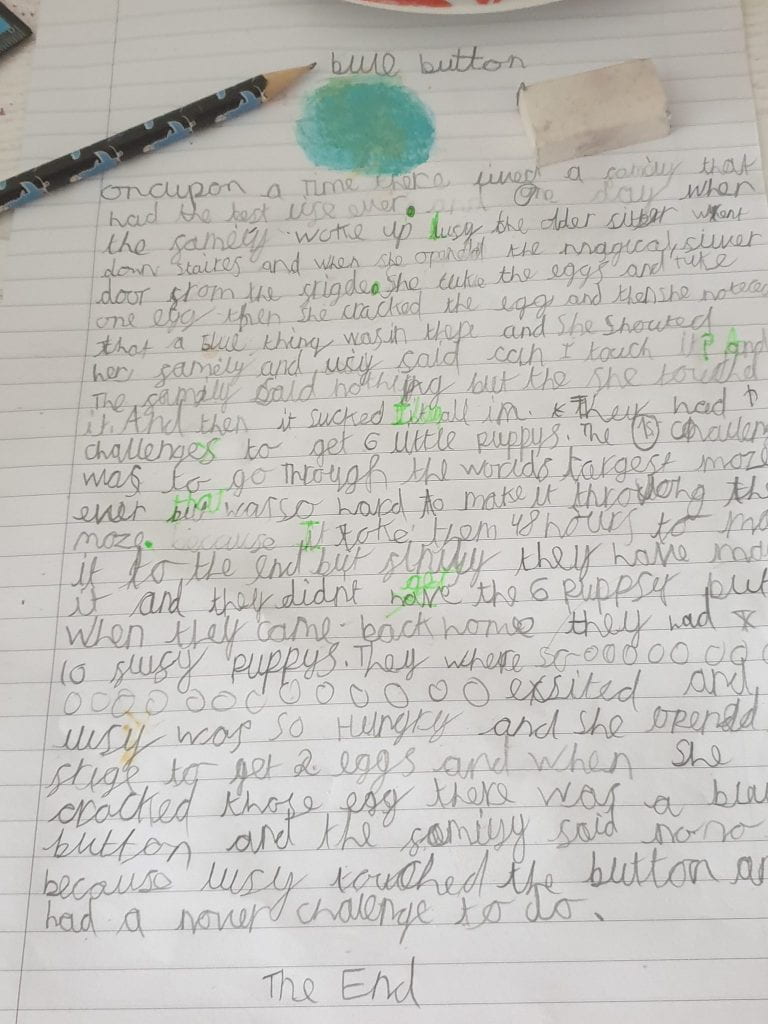 blue button
oncupon a Time there lived a family that
had the best life ever. One day when
the famely woke up lusy the older sister went
down staires and when she opendid the magical, silver
door from the frigde. She tuke the eggs and tuke
one egg then she cracked the egg and then she notered
that a blue thing was in there and she shouted
her famely and lusy said can I touch it? And
The family said nothing but the she touched
it. And then it sucked all im. They had
challenges to get 6 little puppys. The 1st challen
was to go Through the worlds largest moze
ever that was so hard to make it throulong the
moze. because It toke them 48 hours to ma
it to the end but finily they have mad
it and they didnt get the 6 puppsy but
when they came back home they had
10 flufy puppys. They where so ooooooo
ooooooooooooo exsited and
lusy was so Hungry and she opendd
frige to get 2 eggs and when she
cracked those egg there was a blu
button and the famiyy said nono
because lusy touched the button an
had a nover chalenge to do.
The End